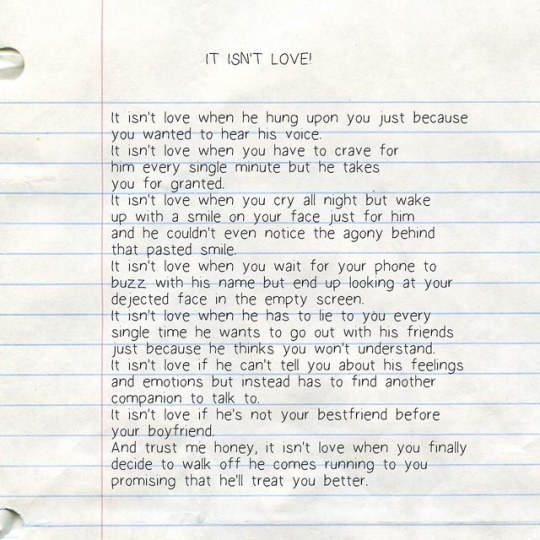 IT ISN'T LOVE!
It isn't love when he hung upon you just because
you wanted to hear his voice.
It isn't love when you have to crave for
him every single minute but he takes
you for granted.
It isn't love when you cry all night but wake
up with a smile on your face just for him
and he couldn't even notice the agony behind
that pasted smile.
It isn't love when you wait for your phone to
buzz with his name but end up looking at your
dejected face in the empty screen.
It isn't love when he has to lie to you every
single time he wants to go out with his friends
just because he thinks you won't understand.
It isn't love if he can't tell you about his feelings
and emotions but instead has to find another
companion to talk to.
It isn't love if he's not your bestfriend before
your boyfriend.
And trust me honey, it isn't love when you finally
decide to walk off he comes running to you
promising that he'll treat you better.